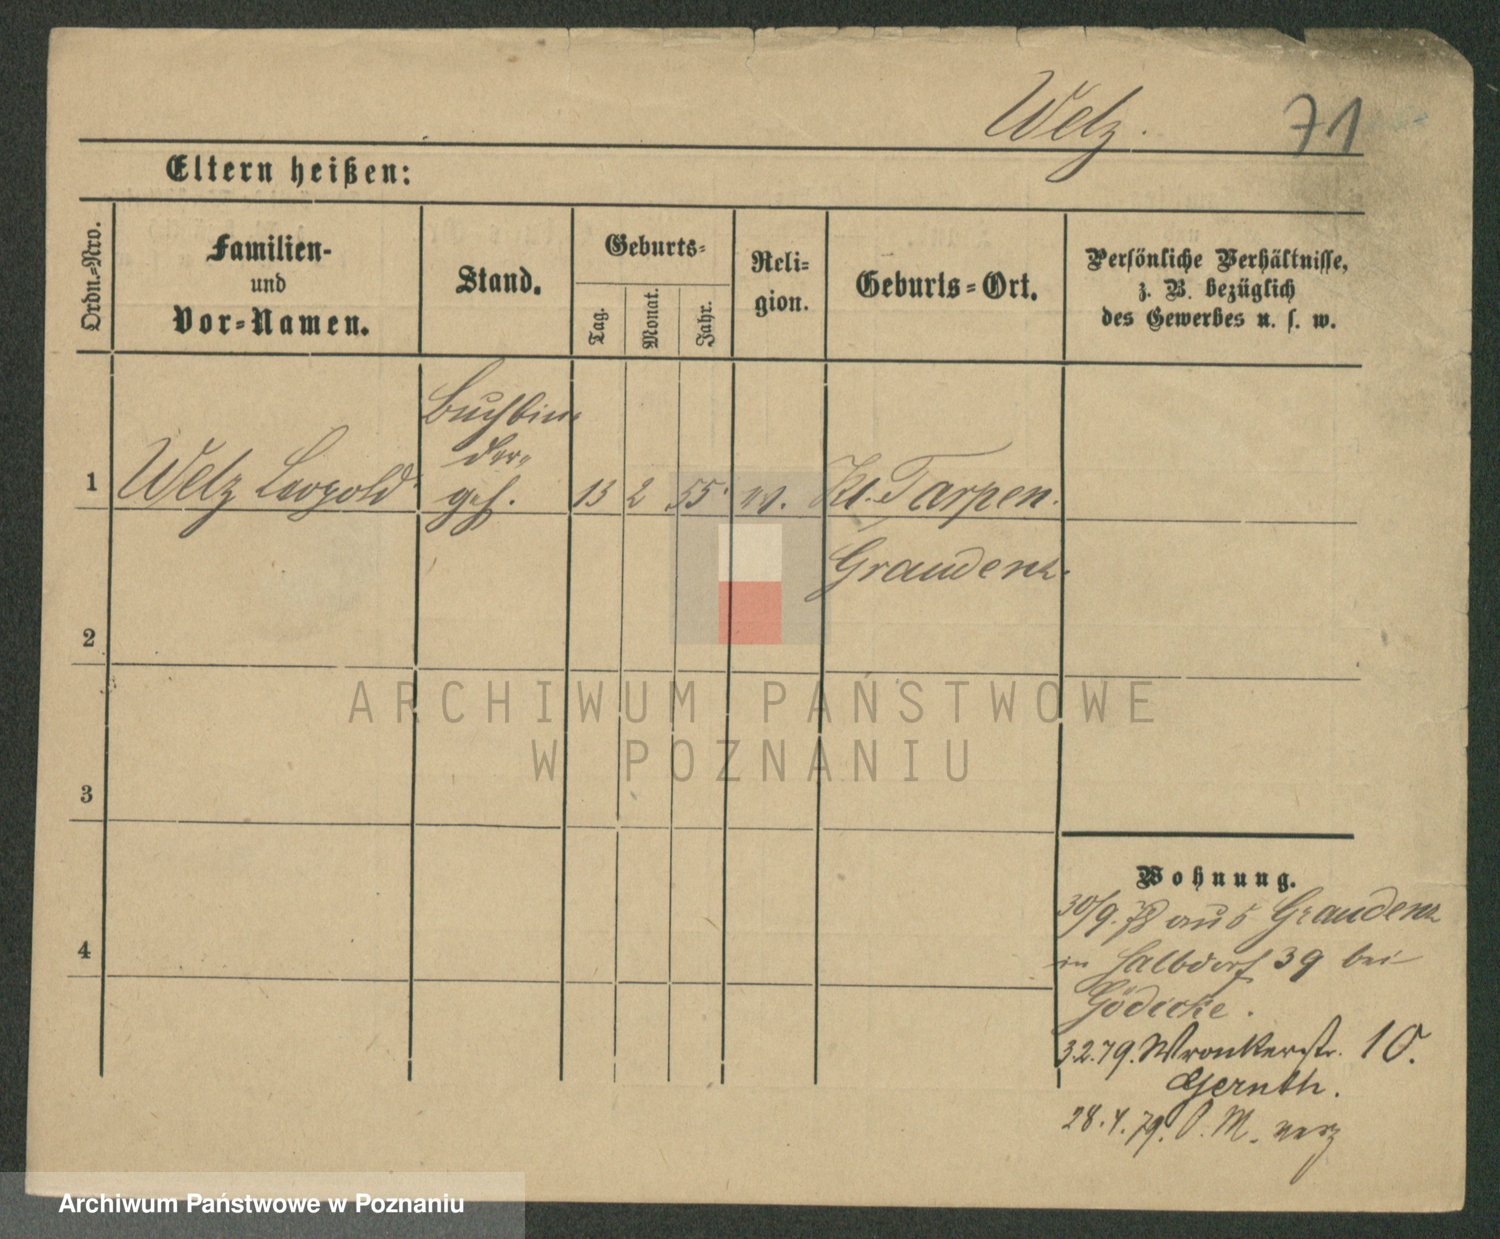 Welz. 71
Eltern heißen:
Ordn.=Nro.
Familien-
und
Vor=Namen.
Stand.
Geburts=
Tag.
Monat.
Jahr.
Reli=
gion.
Geburts=Ort.
Persönliche Verhältnisse,
z. B. bezüglich
des Gewerbes u. s. w.
1
Welz Leopold
Buchbin
der
geh.
13 2 55 ev. Kl. Tarpen.
Graudenz.
2
3
4
Wohnung.
30/9. 78 aus Graudenz
in Halbdorf 39 bei
Gödicke.
3.2.79. Wronkerstr. 10.
Gernth.
28.4.79. P. M. verz
ARCHIWUM PAŃSTWOWE
W POZNANIU
Archiwum Państwowe w Poznaniu